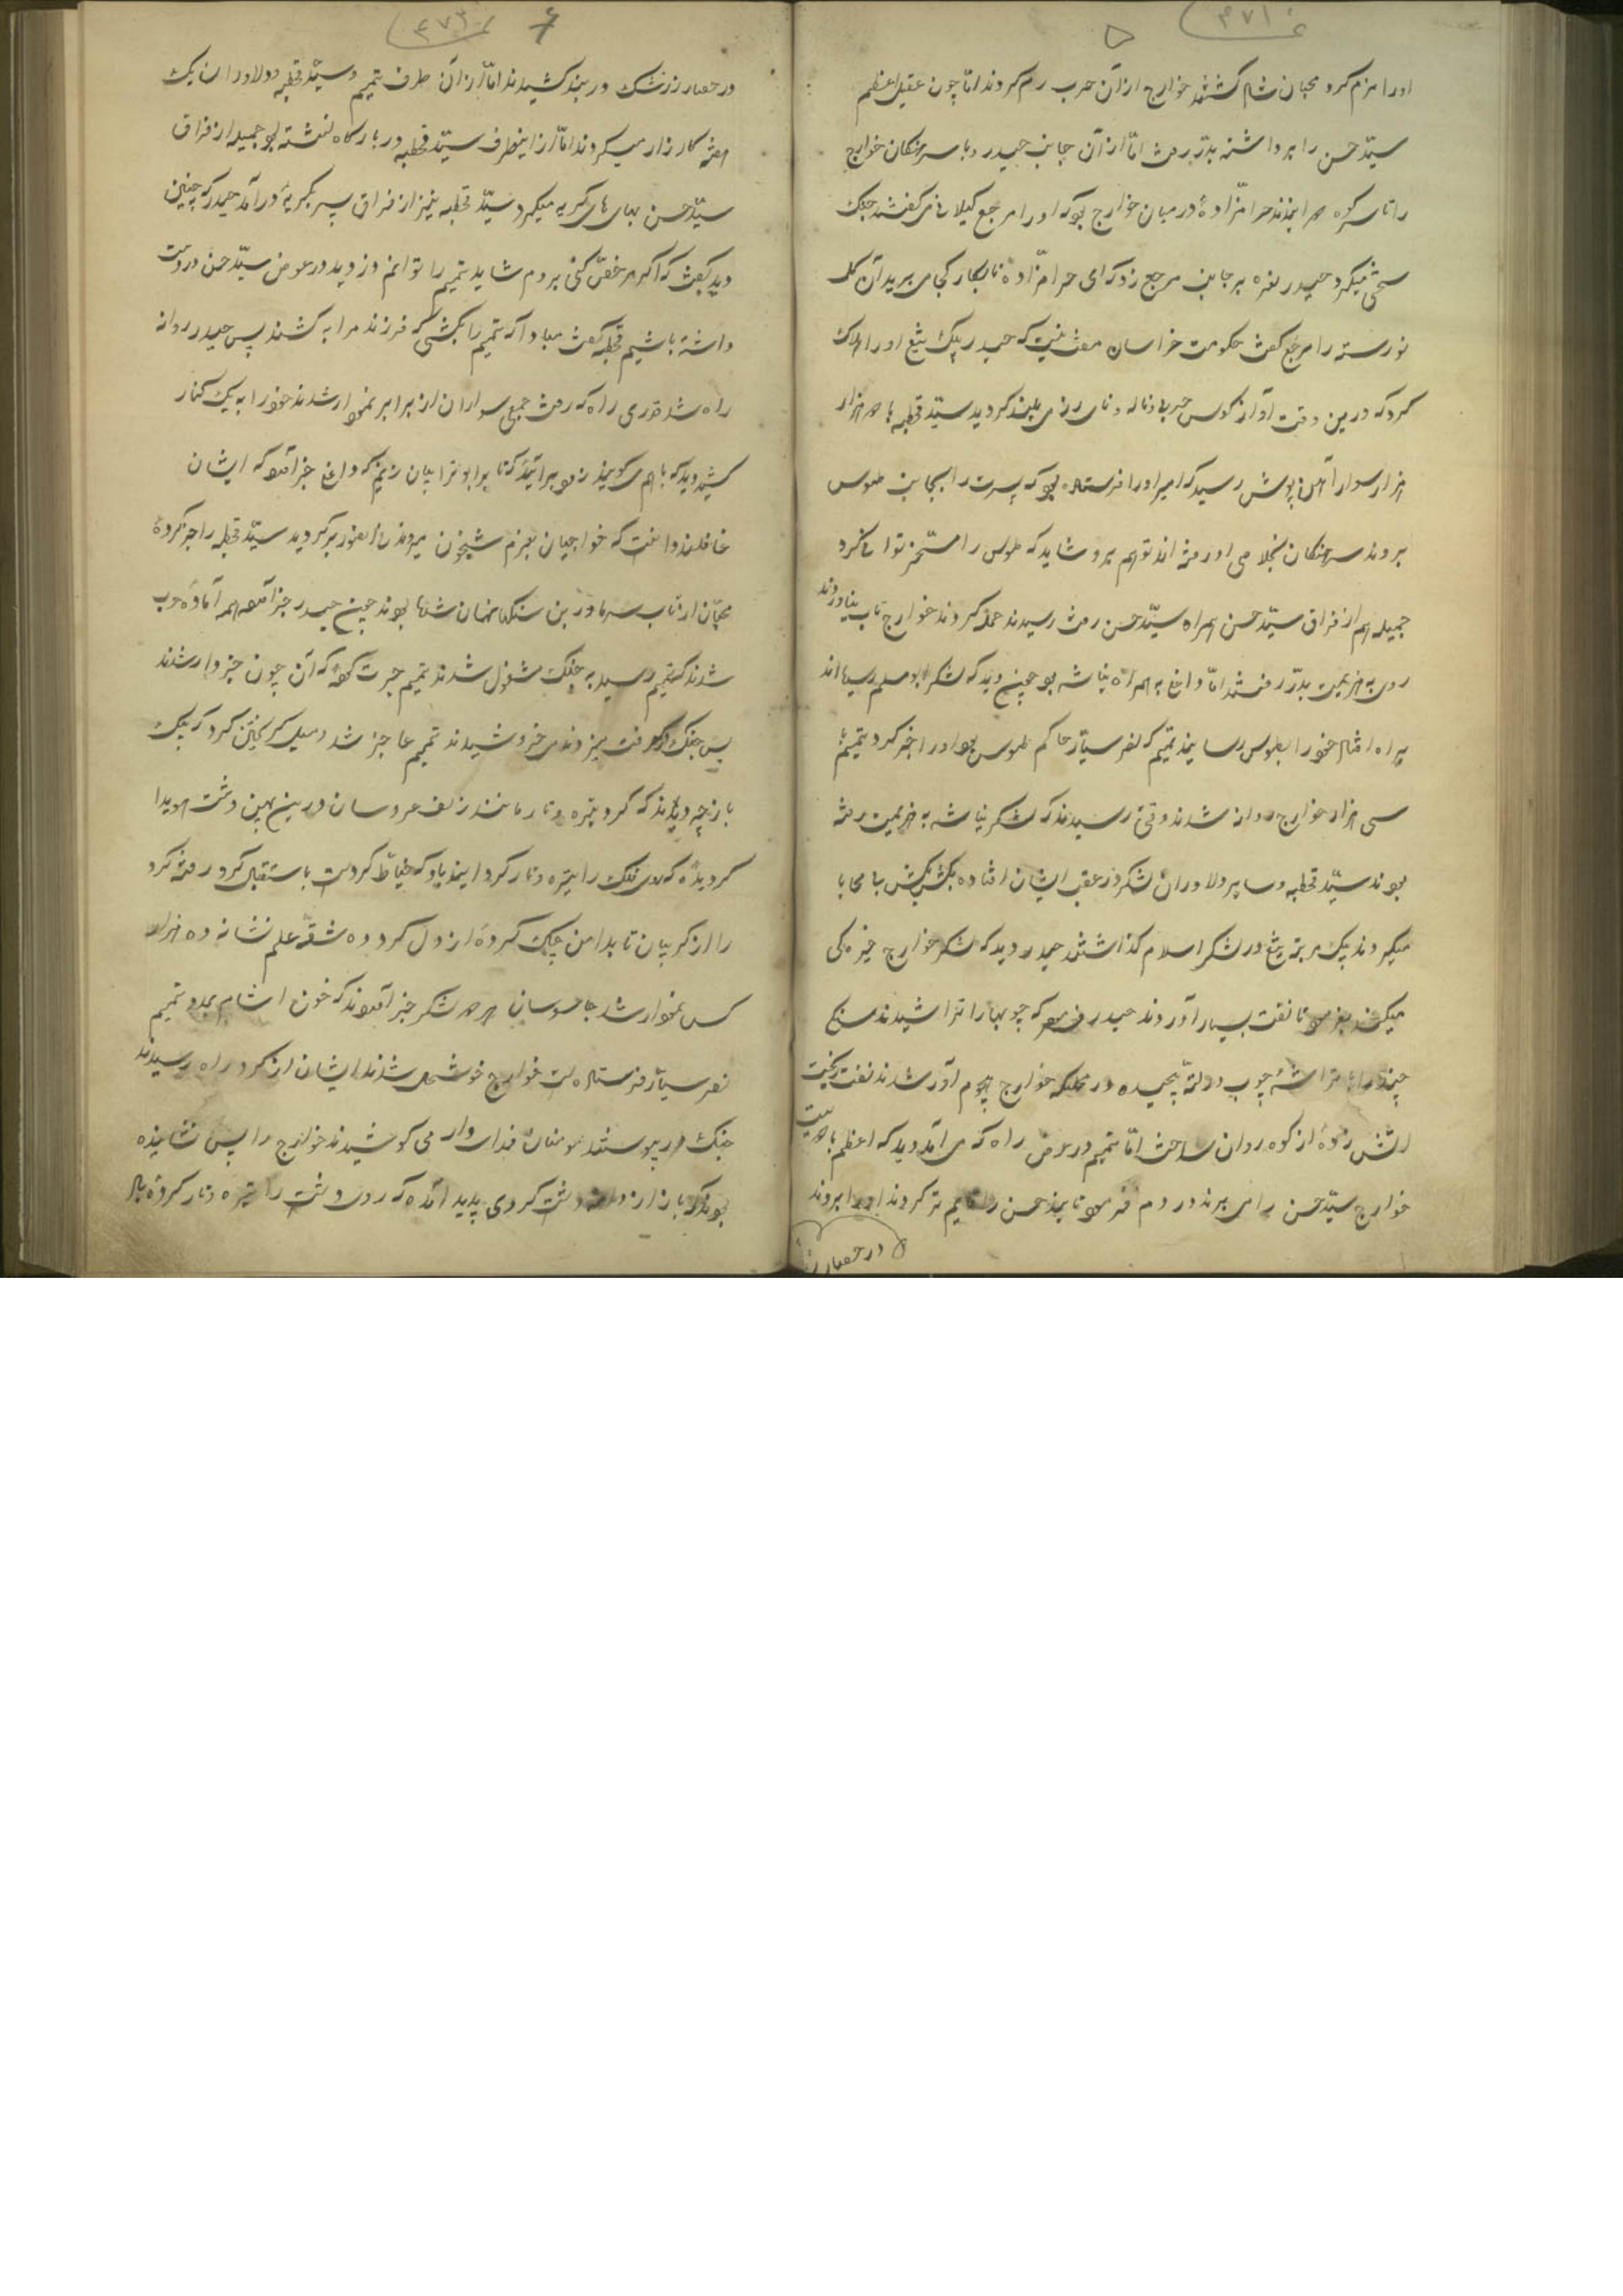 ۴۷۱
۵
اورا هزم کرد محبان شاد گشتند خوارج از آن حرب رم کردند اما چون عقیل اعظم
سیّد حسن را برداشته بدر رفت امّا از آن جانب حیدر و با سرهنکان خوارج
را تا سر کوه میدانیدند حرامزادهٔ در میان خوارج بود که اورا مرجع کیلانی میکفتند جنک
سختی میکرد حیدر نعره بر جانب مرجع زد که ای حرامزادهٔ نابکار کجا می برید آن کل
نو رسته را مرجع کفت حکومت خراسان مفت نیست که حیدر بیک تیغ اورا هلاک
کرد که درین وقت آواز کوس حربی و ناله و نای رزمی بلند کردید سیّد قحطبه با هزار
هزار سوار آهن پوش رسید که امیر اورا فرستاده بود که پسرت را بجانب طوس
بردند سرهنکان بخلاصی او رفته اند تو هم برو شاید که طوس را مسخّر توانی کرد
جمیله هم از فراق سیّد حسن همراه سیّد حسن رفت رسیدند حمله کردند خوارج تاب نیاوردند
روی به هزیمت بدر رفتند امّا واغ به همراه بناشه بود چنین دید که لشکر ابومسلم رسیده اند
براه افتاد خود را بطوس رسانید تمیم که نصر سیّار حاکم طوس بود اورا خبر کرد تمیم با
سی هزار خوارج روانه شدند وقتی رسیدند که لشکر بناشه به هزیمت رفته
بودند سیّد قحطبه و سایر دلاوران لشکر در عقب ایشان افتاده بکش بکش بی محابا
میکردند یک مرتبه تیغ در لشکر اسلام گذاشتند حیدر دید که لشکر خوارج خیره کی
میکنند بفرمود تا نفت بسیار آوردند حیدر فرمود که چوبها را تراشیدند
چند را تراشهٔ چوب در لته پیچیده در محلیکه خوارج هجوم آور شدند نفت ریخت
آتش زدهٔ از کوه روان ساخت امّا تمیم در عرض راه که می آمد دید که اعظم با دویست
خوارج سیّد حسن را می برند در دم فرمود تا بند حسن را قایم تر کردند اورا بردند
در حصار
۴۷۲
۶
در حصار زرشک در بند کشیدند امّا از آن طرف تمیم و سیّد قحطبه و دلاوران یک
هفته کارزار میکردند امّا از اینطرف سیّد قحطبه در بارکاه نشسته بود جمیله از فراق
سیّد حسن بهای های کریه میکرد سیّد قحطبه نیز از فراق پسر بکریه درآمد حیدر که چنین
دید بکفت که اکر مرخص کنی بروم شاید تمیم را توانم دزدید در عوض سیّد حسن در دست
داشته باشیم قحطبه کفت مبادا که تمیم را بکشی که فرزند مرا به کشند پس حیدر روانه
راه شد قدری راه که رفت جمعی سواران از برابر نمودار شدند خود را به یک کنار
کشید دید که باهم میکویند زود بیائید که تا بر ابوترابیان ریزیم که واغ خبر آورده که ایشان
غافلند دانست که خوارجیان بعزم شبیخون میروند فی الفور برکردید سیّد قحطبه را خبر کردهٔ
محبّان از تاب سرما در بن سنکها نهان شده بودند چون حیدر خبر آورد همه آمادهٔ حرب
شدند که تمیم رسید به جنک مشغول شدند تمیم حیرت کرده که آن چون خبردار شدند
پس جنک میزدند می خروشیدند تمیم عاجز شد و میل کریختن کرد که یک
بار چه دیدند که کرد تیره و تار مانند زلف عروسان در بین پهن دشت هویدا
کردیده که روی فلک را تیره و تار کرد اینه باد که خیاط کردست باستقبال کرد رفته کرد
را از کریبان تا بدامن چاک کردهٔ از دل کرد ده شقه علم نشانه ده هزار
کس نمودار شد جاسوسان هر دو لشکر خبر آوردند که خون آشام بمدد تمیم
نصر سیّار فرستاده است خوارج خوشحال شدند ایشان از کرد راه رسیدند
جنک در پیوستند مومنان فداوار می کوشیدند خوارج را پس نشانیده
بودند که باز از دامنه دشت کردی پدید آمده که روی دشت را تیره و تار کردهٔ باد